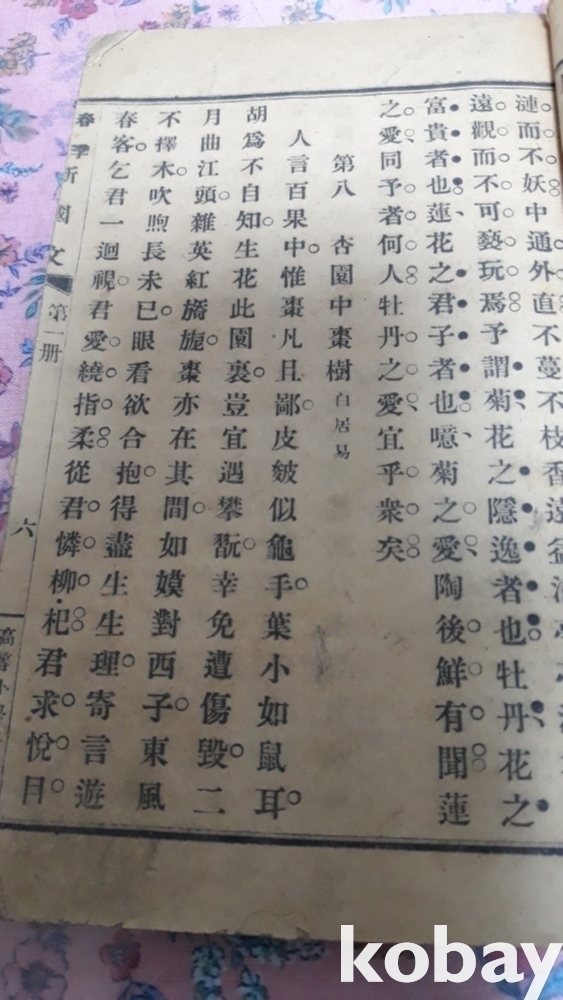 漣而不妖中通外直不蔓不枝香遠益
遠觀而不可褻玩焉予謂菊花之隱逸者也牡丹花之
富貴者也蓮花之君子者也噫菊之愛陶後鮮有聞蓮
之愛同予者何人牡丹之愛宜乎衆矣
第八 杏園中棗樹 白居易
人言百果中惟棗凡且鄙皮皴似龜手葉小如鼠耳
胡爲不自知生花此園裏豈宜遇攀翫幸免遭傷毀二
月曲江頭雜英紅旖旎棗亦在其間如嫫對西子東風
不擇木吹煦長未已眼看欲合抱得盡生生理寄言遊
春客乞君一迴視君愛繞指柔從君憐柳杞君求悅目
春季新國文 第一册 六 高等小
kobay